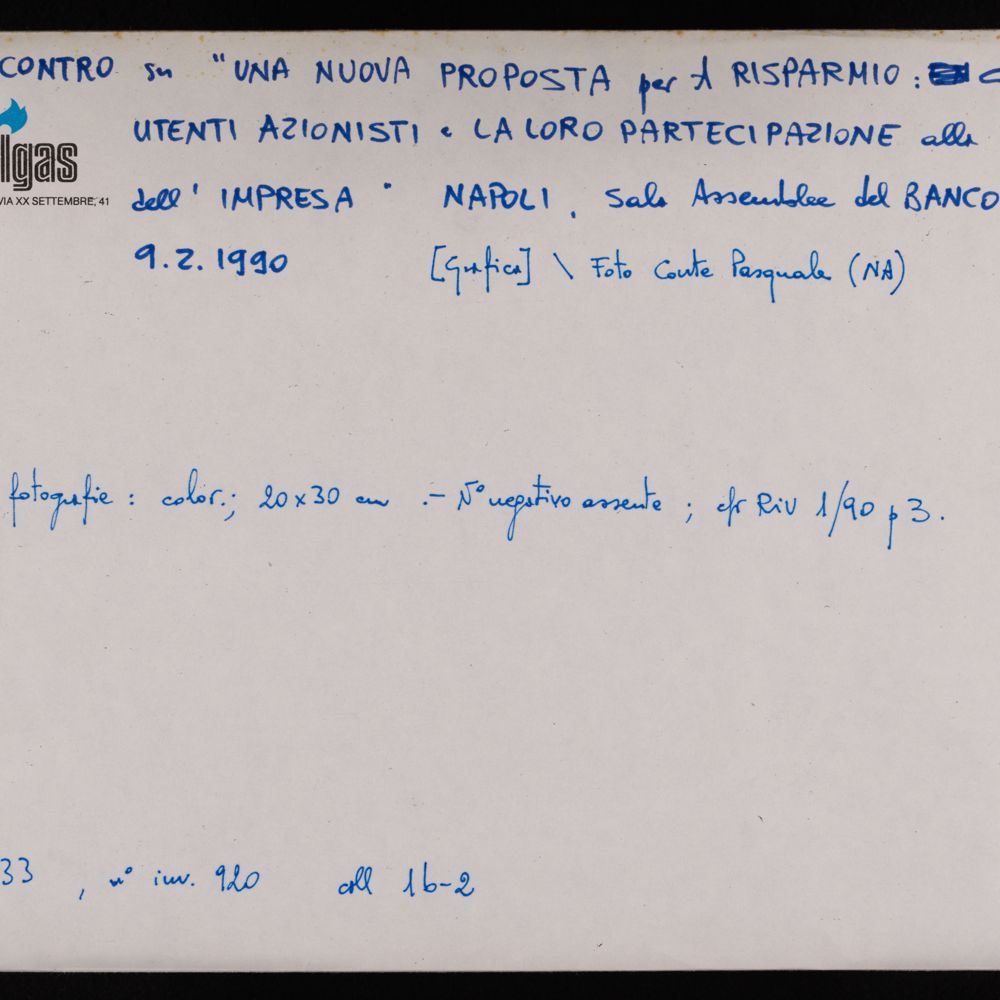 CONTRO su "UNA NUOVA PROPOSTA per il RISPARMIO:
UTENTI AZIONISTI e LA LORO PARTECIPAZIONE alla
lgas
VIA XX SETTEMBRE, 41
dell' IMPRESA" NAPOLI, Sala Assemblee del BANCO
9.2.1990 [Grafica] \ Foto Conte Pasquale (NA)
fotografie : color.; 20x30 cm .- N° negativo assente ; cfr Riv 1/90 p 3.
33 , n° inv. 920 coll 1b-2